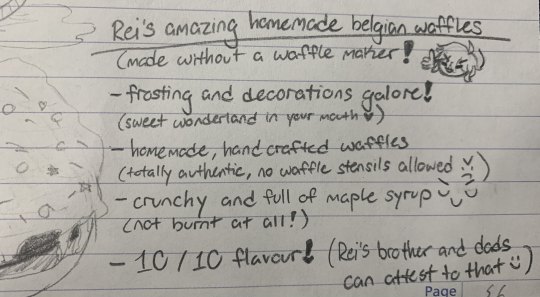 Rei's amazing homemade belgian waffles
(made without a waffle maker!
- frosting and decorations galore!
(sweet wonderland in your mouth)
- homemade, hand crafted waffles
(totally authentic, no waffle stensils allowed)
- crunchy and full of maple syrup
(not burnt at all!)
- 10/10 flavour! (Rei's brother and dads
can attest to that)
Page